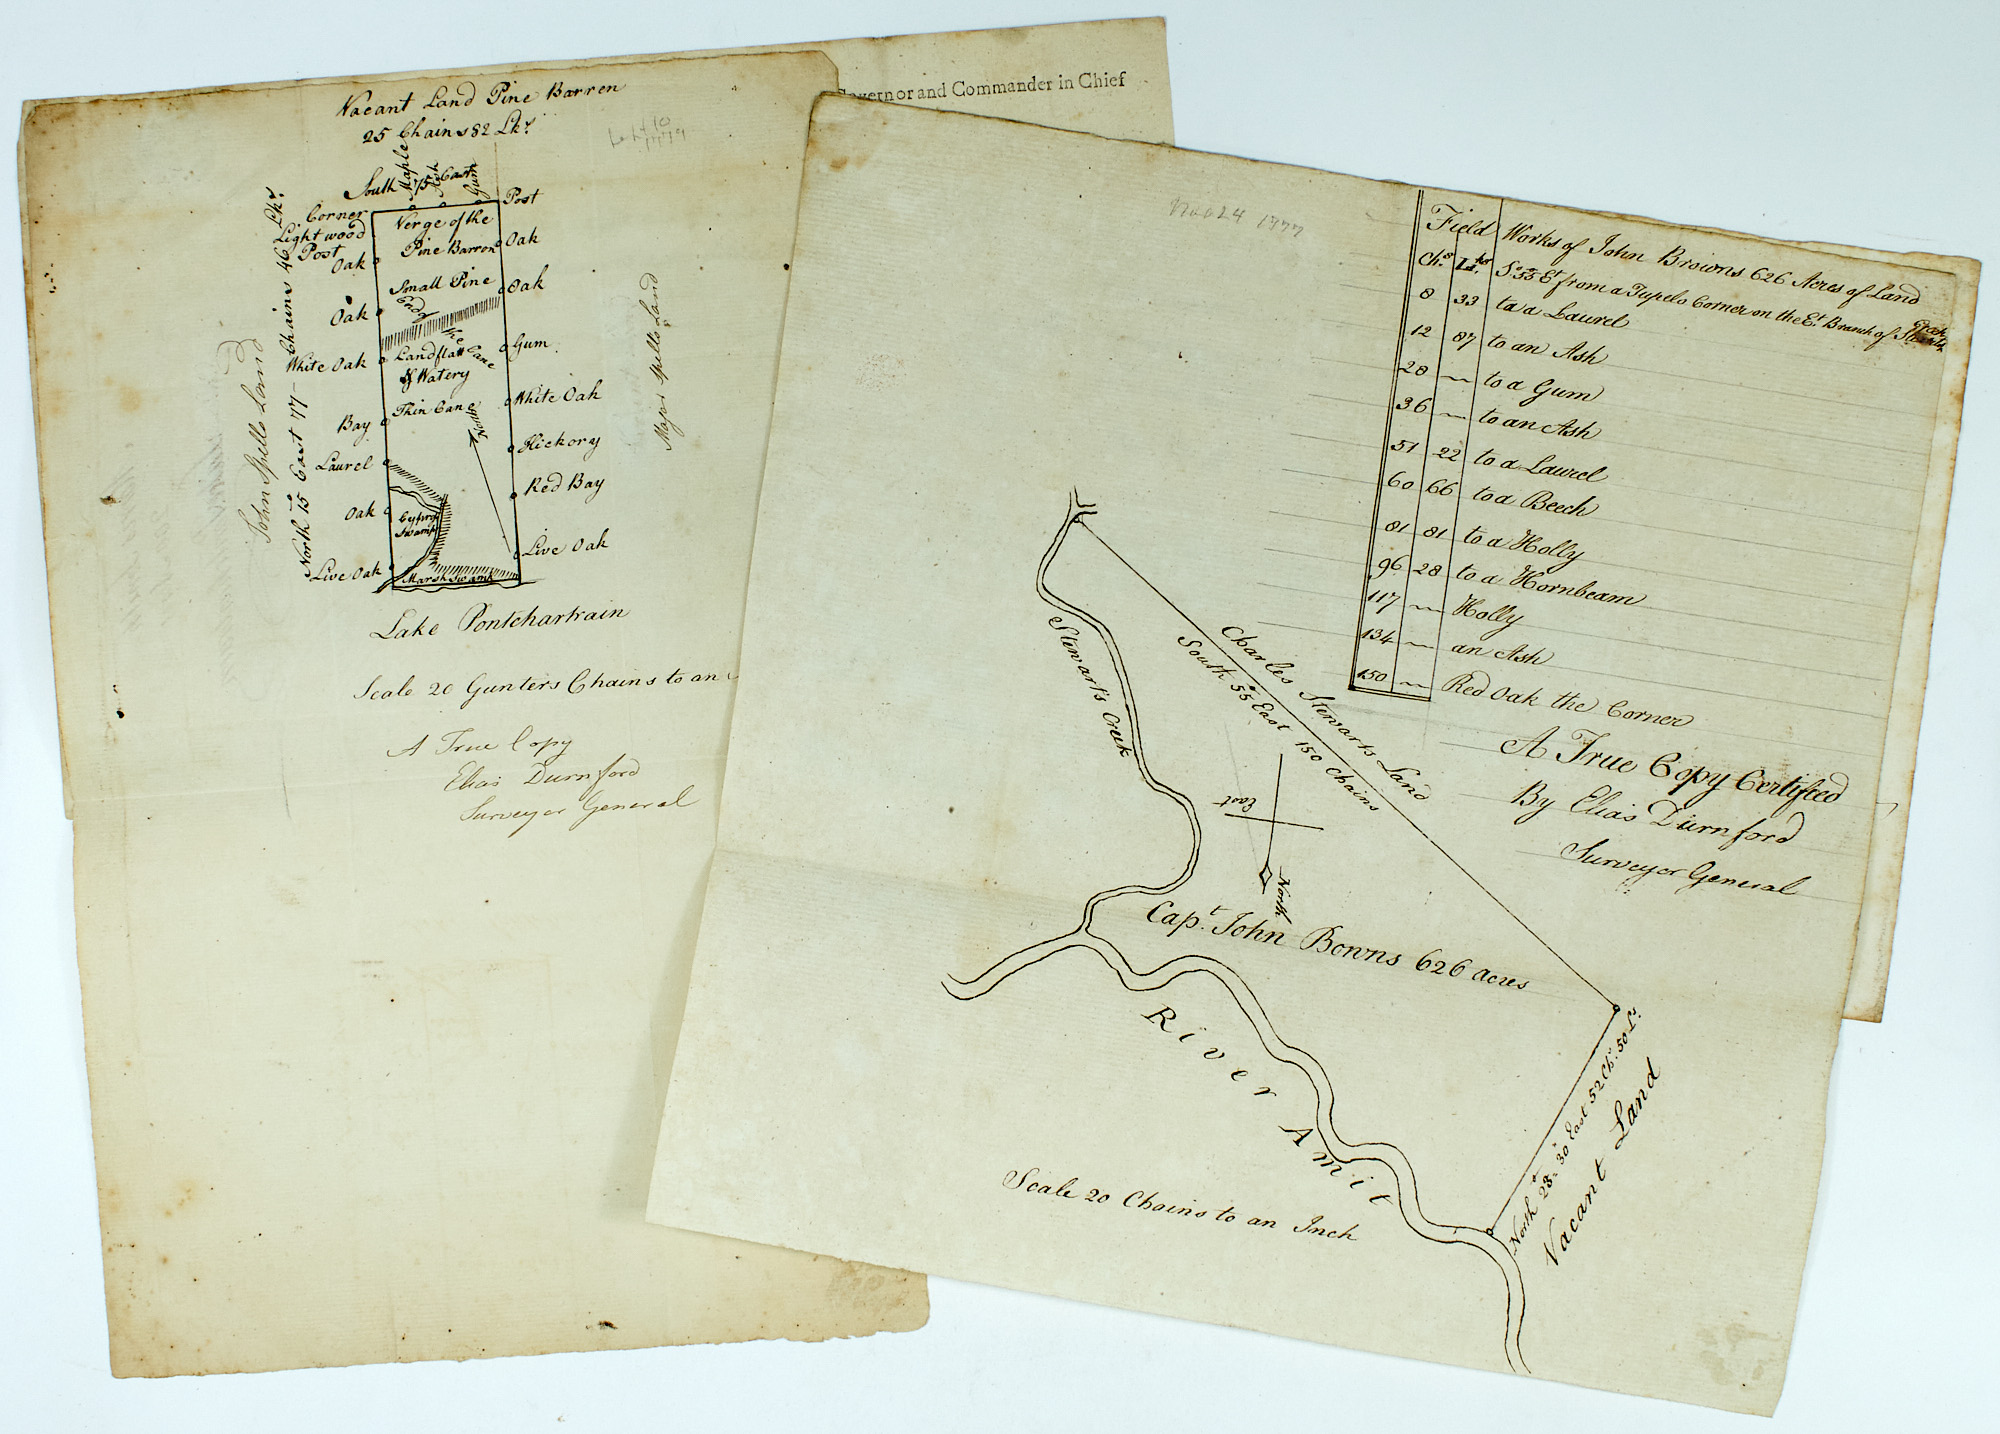 Governor and Commander in Chief
Vacant Land Pine Barren
25 Chains 82 Lks
South 75 East
Maple
Ash
Gum
Post
Corner
Lightwood
Post
Oak
Oak
White Oak
Bay
Laurel
Oak
Live Oak
Verge of the
Pine Barron
Small Pine
And
the
Cane
Land flatt
& Watery
Thin Cane
North
Cypress
Swamp
Marsh Swamp
Oak
Oak
Gum
White Oak
Hickory
Red Bay
Live Oak
John Spells Land
North 15° East 77 Chains 46 Lks
Major Spells Land
Lake Pontchartrain
Scale 20 Gunters Chains to an
A True Copy
Elias Durnford
Surveyor General
Nov 24 1777
Field Works of John Browns 626 Acres of Land
Chs Lks So 55 Et from a Tupelo Corner on the Et Branch of Creek
8 33 to a Laurel
12 87 to an Ash
28 — to a Gum
36 — to an Ash
51 22 to a Laurel
60 66 to a Beech
81 81 to a Holly
96 28 to a Hornbeam
117 — Holly
134 — an Ash
150 — Red Oak the Corner
A True Copy Certified
By Elias Durnford
Surveyor General
Stewarts Creek
Charles Stewarts Land
South 55° East 150 Chains
East
North
Capt. John Bowns 626 acres
River Amit
North 23° 30 East 52 Chs. 50 Ls
Vacant Land
Scale 20 Chains to an Inch